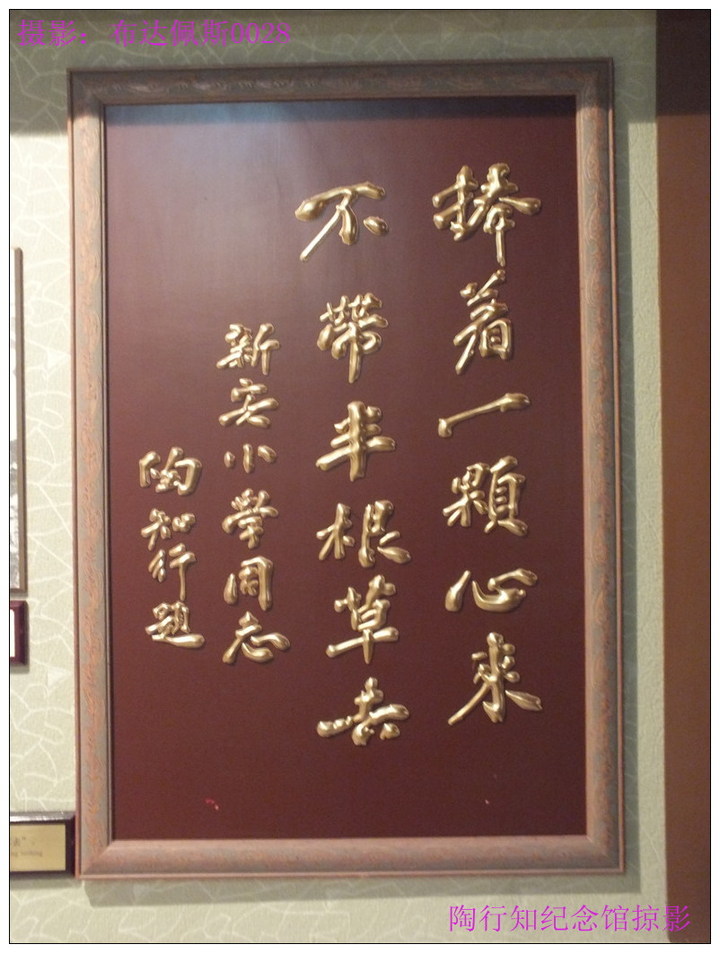 摄影：布达佩斯0028
捧着一顆心來
不帶半根草去
新安小学同志
陶知行題
陶行知纪念馆掠影